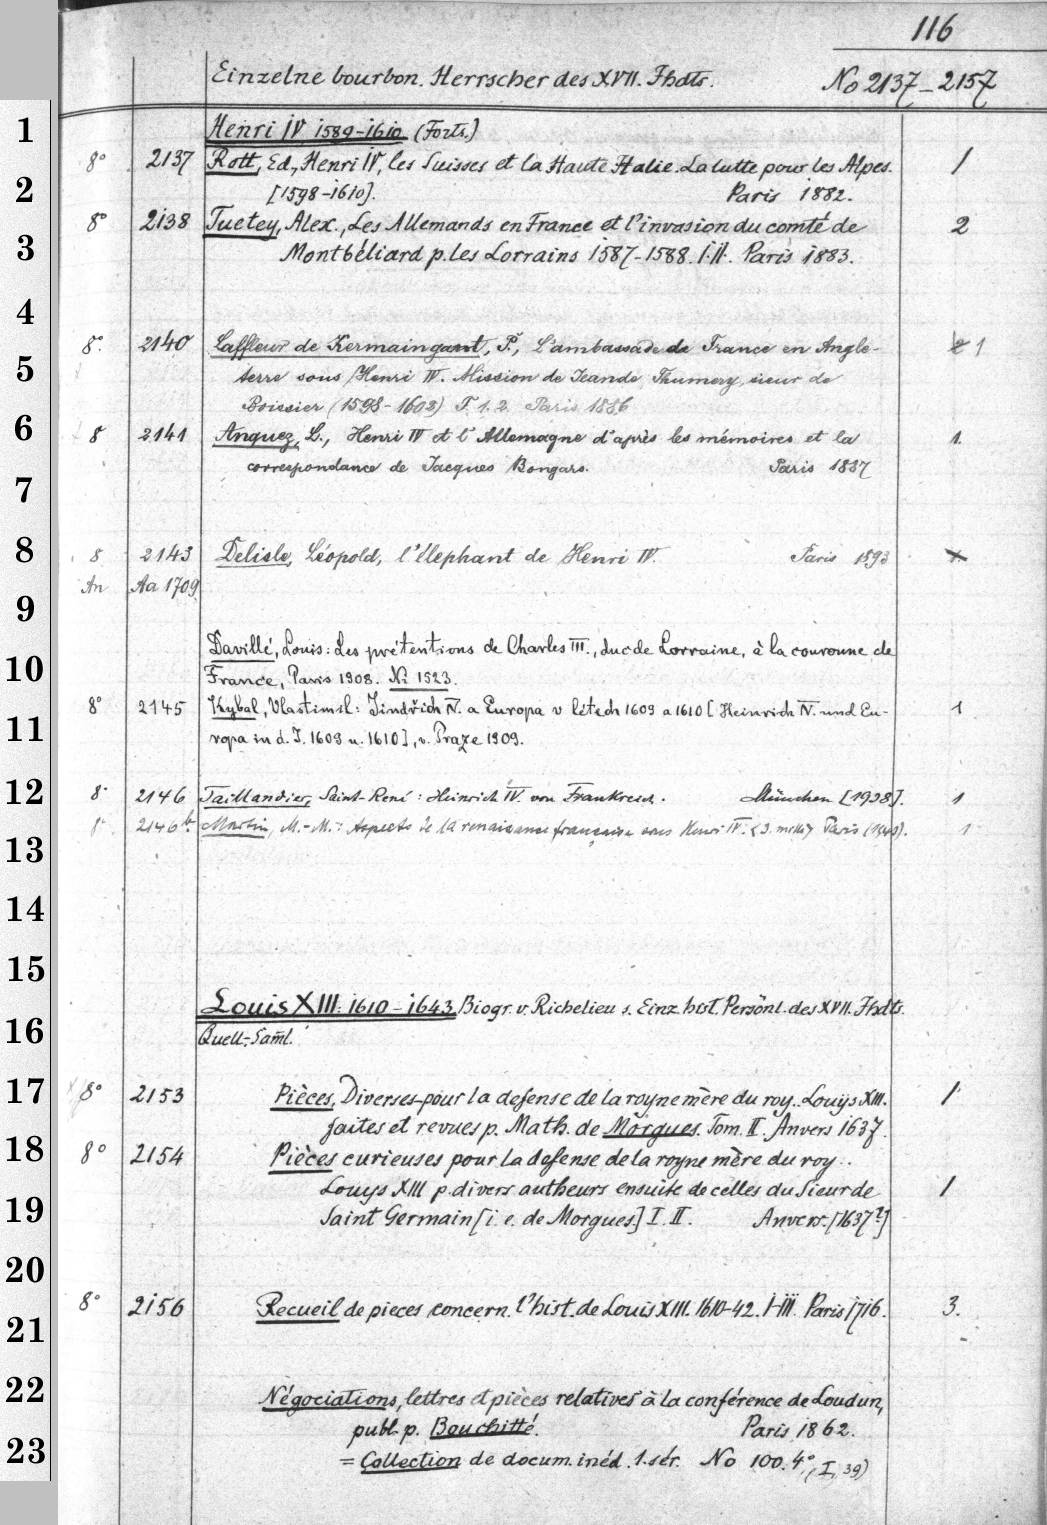 116
Einzelne bourbon. Herrscher des XVII. Jhdts. No 2137–2157
1
Henri IV 1589–1610 (Forts.)
8° 2137 Rott, Ed., Henri IV, les Suisses et la Haute Italie. La lutte pour les Alpes. 1
2
[1598–1610]. Paris 1882.
8° 2138 Tuetey, Alex., Les Allemands en France et l'invasion du comté de 2
3
Montbéliard p. les Lorrains 1587–1588. I.II. Paris 1883.
4
8° 2140 Laffleur de Kermaingant, P., L'ambassade de France en Angle- 1
5
terre sous Henri IV. Mission de Jean de Thumery, sieur de
Boissier (1598–1602) T. 1. 2. Paris 1886
6
8 2141 Anquez, L., Henri IV et l'Allemagne d'après les mémoires et la 1.
correspondance de Jacques Bongars. Paris 1887
7
8
8 2143 Delisle, Léopold, l'élephant de Henri IV. Paris 1893
An Aa 1709
9
Davillé, Louis: Les prétentions de Charles III., duc de Lorraine, à la couronne de
10
France, Paris 1908. No 1523.
8° 2145 Kybal, Vlastimil: Jindřich IV. a Europa v létech 1609 a 1610 [Heinrich IV. und Eu- 1
11
ropa in d. J. 1609 u. 1610], v. Praze 1909.
12
8° 2146 Taillandier, Saint-René: Heinrich IV. von Frankreich. München [1938]. 1
2146b. Martin, M.-M.: Aspects de la renaissance française sous Henri IV. Paris 1
13
14
15
Louis XIII: 1610–1643. Biogr. v. Richelieu s. Einz. hist. Persönl. des XVII. Jhdts.
16
Quell.-Saml.
17
8° 2153 Pièces, Diverses pour la defense de la royne mère du roy.. Louys XIII. 1
faites et revues p. Math. de Morgues. Tom. II. Anvers 1637.
18
8° 2154 Pièces curieuses pour la defense de la royne mère du roy..
Louys XIII p. divers autheurs ensuite de celles du Sieur de 1
19
Saint Germain [i. e. de Morgues] I. II. Anvers. [1637?]
20
8° 2156 Recueil de pieces concern. l'hist. de Louis XIII. 1610–42. I–III. Paris 1716. 3.
21
22
Négociations, lettres et pièces relatives à la conférence de Loudun,
publ. p. Bouchitté. Paris 1862.
23
= Collection de docum. inéd. 1. sér. No 100. 4° (I, 39)